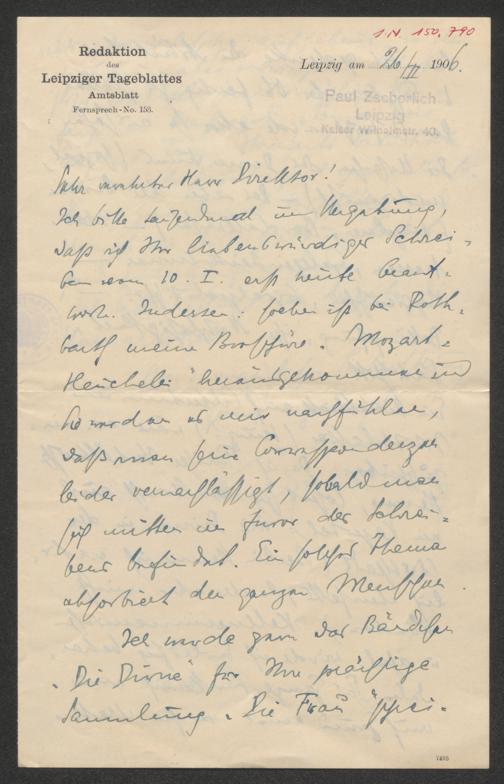 I.N. 150.790
Redaktion
des
Leipziger Tageblattes
Amtsblatt
Fernsprech-No. 153.
Leipzig am 26/II 1906.
Paul Zschorlich
Leipzig
Kaiser Wilhelmstr. 40.
Sehr verehrter Herr Direktor!
Ich bitte tausendmal um Vergebung,
daß ich Ihr liebenswürdiges Schrei-
ben vom 10. I. erst heute beant-
worte. Indessen: soeben ist bei Roth-
barth meine Broschüre „Mozart-
Heuchelei" herausgekommen und
Sie werden es mir nachfühlen,
daß man seine Correspondenzen
leider vernachlässigt, sobald man
sich mitten im furor des Schrei-
bens befindet. Ein solches Thema
absorbiert den ganzen Menschen.
Ich werde gern das Bändchen
„Die Dirne" für Ihre prächtige
Sammlung „Die Frau" schrei-
7405